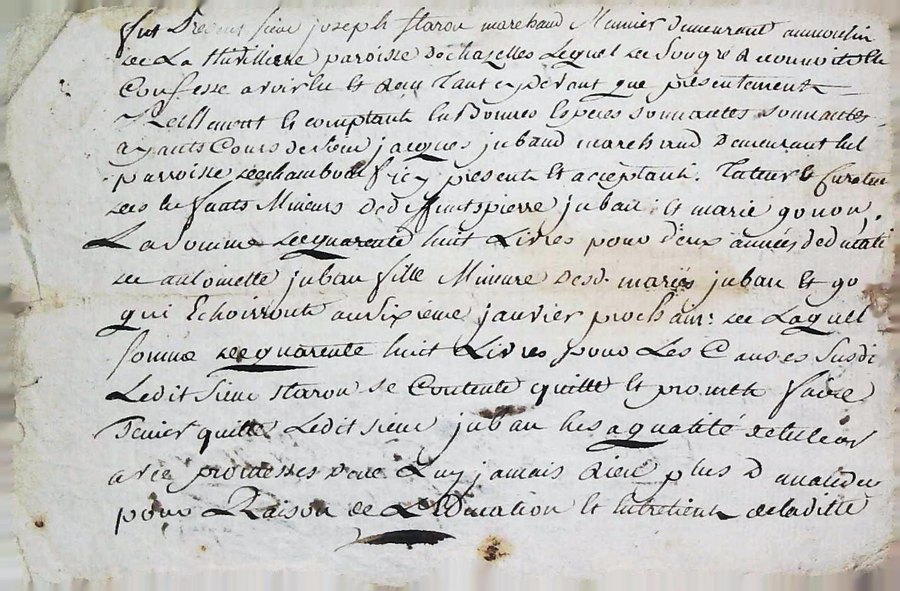 fut Present sieur joseph staron marchand Munier demeurant au moulin
de La thuilliere paroisse de chazelles Lequel de son gré a reconnu et
Confesse avoir eu et Receu tant cy devant que presentement
Reellement et comptant en Bonnes Especes sonnantes
ayants Cours de sieur jacques juband marchand Demeurant
parroisse de chambeuf jcy present et acceptant. Tuteur et Curateur
des Enfants Mineurs de deffunts pierre juban et marie gonon.
La somme de quarente huit Livres pour deux années
de antoinette juban fille Mineure Desd. mariés juban et go
qui Echoirront au sixieme janvier prochain: de Laquel
somme de quarente huit Livres pour Les Causes susdi
Ledit sieur staron se Contente quitte et promet faire
Tenir quitte Ledit sieur juban en sa qualité de tuteur
avec promesses de ne Luy jamais Rien plus Demander
pour Raison de L'Education et Entretient de laditte